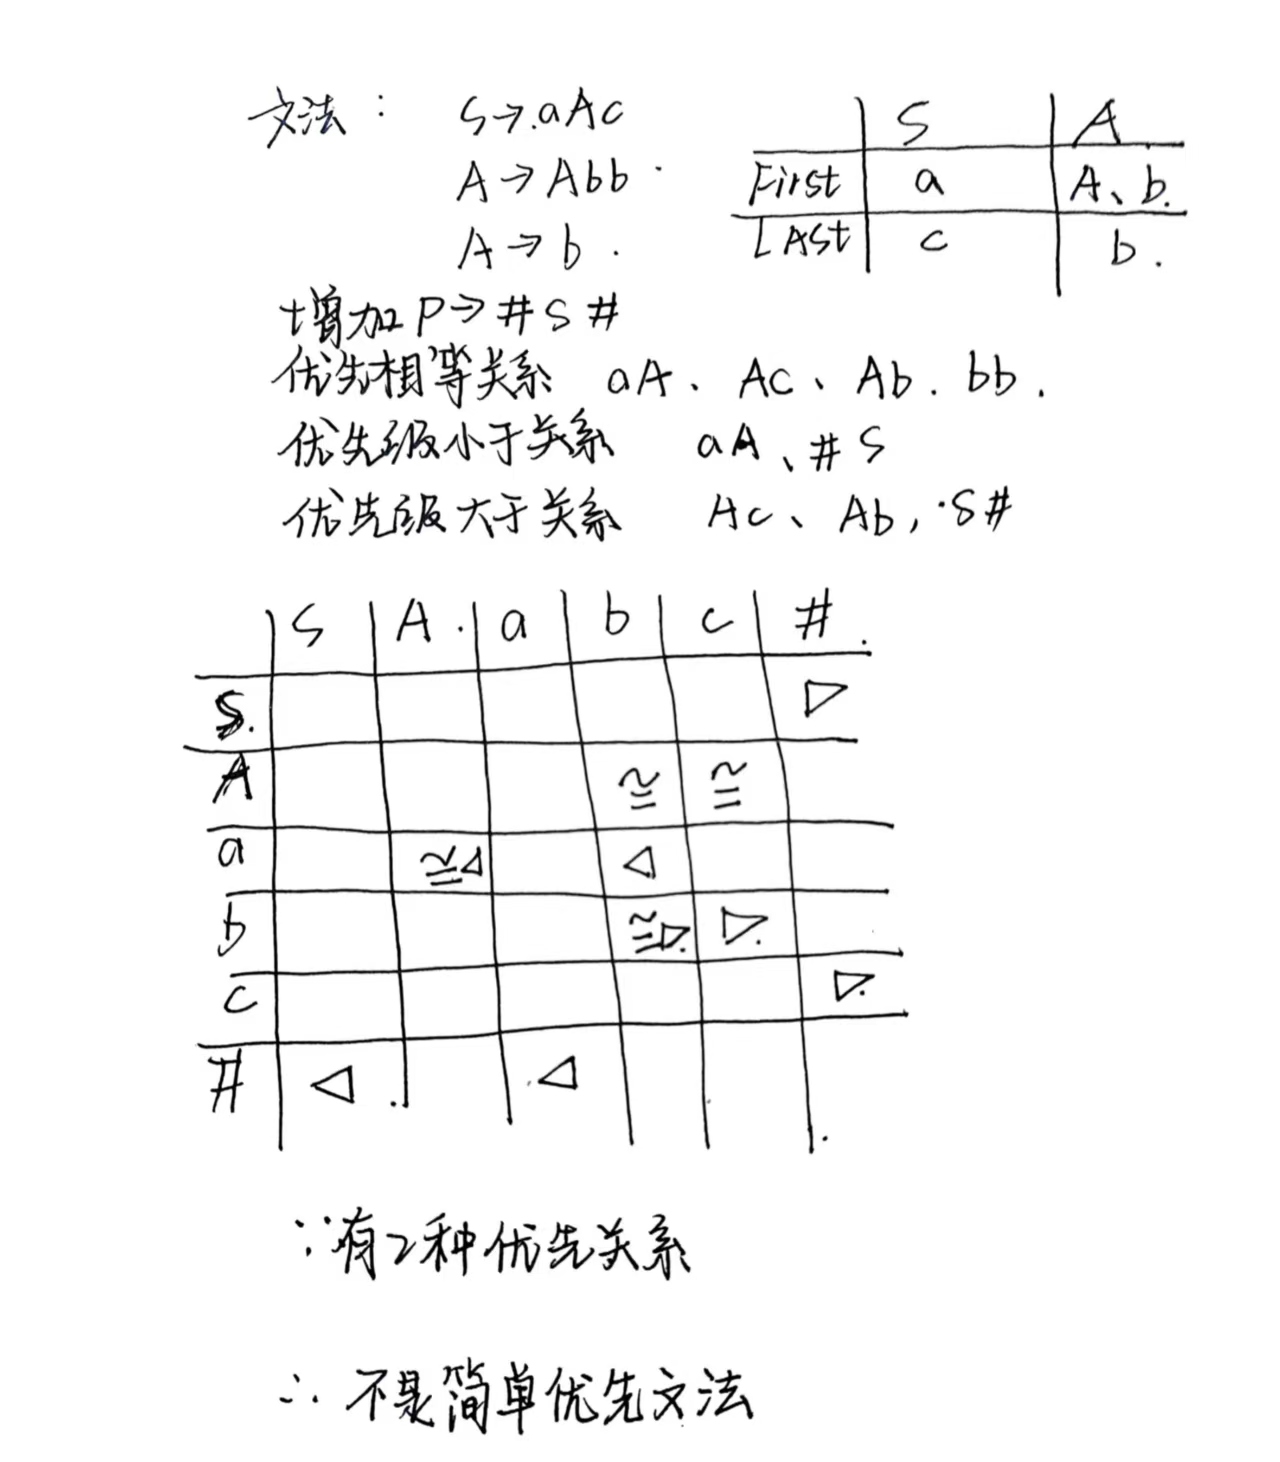 文法： S→.aAc
A→Abb.
A→b.
S A
First a A、b.
LAst c b.
增加P→#S#
优先相等关系 aA、Ac、Ab.bb.
优先级小于关系 aA、#S
优先级大于关系 Ac、Ab,·S#
S A. a b c #.
S. ▷
A ≅ ≅
a ≅◁ ◁
b ≅▷. ▷.
c ▷.
# ◁ ◁
∵有2种优先关系
∴不是简单优先文法